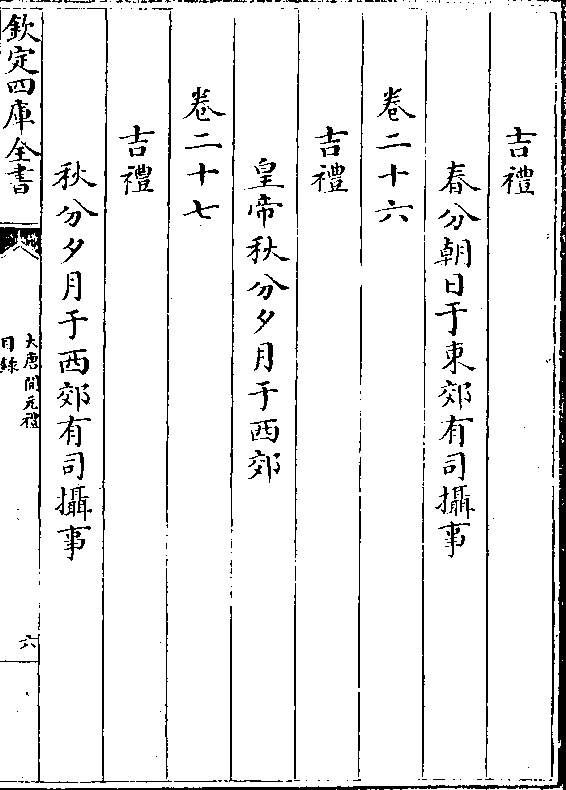 吉禮
春分朝日于東郊有司攝事
卷二十六
吉禮
皇帝秋分夕月于西郊
卷二十七
吉禮
秋分夕月于西郊有司攝事
欽定四庫全書
大唐開元禮
目錄
六